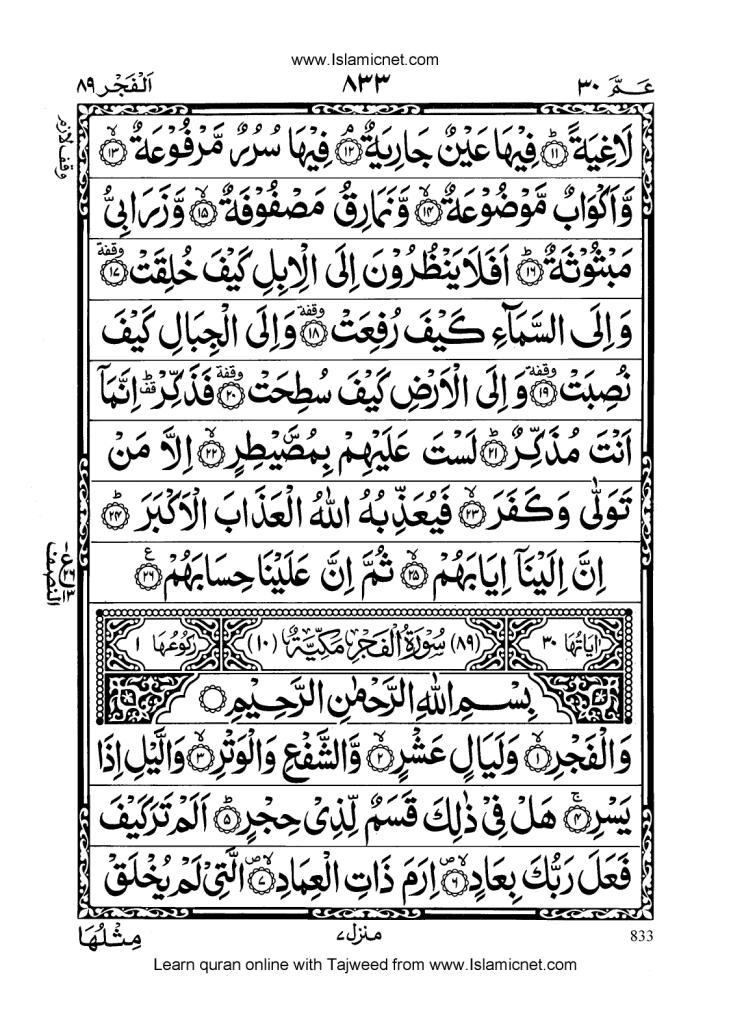 www.Islamicnet.com
عَـمَّ ٣٠
٨٣٣
اَلْفَجْر ٨٩
لَاغِيَةً ﴿١١﴾ؕ فِيْهَا عَيْنٌ جَارِيَةٌ ﴿١٢﴾ۘ فِيْهَا سُرُرٌ مَّرْفُوْعَةٌ ﴿١٣﴾ۙ
وقف لازم
وَّاَكْوَابٌ مَّوْضُوْعَةٌ ﴿١٤﴾ۙ وَّنَمَارِقُ مَصْفُوْفَةٌ ﴿١٥﴾ۙ وَّزَرَابِيُّ
مَبْثُوْثَةٌ ﴿١٦﴾ؕ اَفَلَا يَنْظُرُوْنَ اِلَى الْاِبِلِ كَيْفَ خُلِقَتْ ﴿١٧﴾ وقفة
وَاِلَى السَّمَآءِ كَيْفَ رُفِعَتْ ﴿١٨﴾ وقفة وَاِلَى الْجِبَالِ كَيْفَ
نُصِبَتْ ﴿١٩﴾ وقفة وَاِلَى الْاَرْضِ كَيْفَ سُطِحَتْ ﴿٢٠﴾ وقفة فَذَكِّرْ قف اِنَّمَآ
اَنْتَ مُذَكِّرٌ ﴿٢١﴾ؕ لَسْتَ عَلَيْهِمْ بِمُصَۜيْطِرٍ ﴿٢٢﴾ۙ اِلَّا مَنْ
تَوَلّٰى وَكَفَرَ ﴿٢٣﴾ۙ فَيُعَذِّبُهُ اللّٰهُ الْعَذَابَ الْاَكْبَرَ ﴿٢٤﴾ؕ
اِنَّ اِلَيْنَآ اِيَابَهُمْ ﴿٢٥﴾ۙ ثُمَّ اِنَّ عَلَيْنَا حِسَابَهُمْ ﴿٢٦﴾ ع
النصف
اٰيَاتُهَا ٣٠
(٨٩) سُوْرَةُ الْفَجْرِ مَكِّيَّةٌ (١٠)
رُكُوْعُهَا ١
بِسْمِ اللّٰهِ الرَّحْمٰنِ الرَّحِيْمِ
وَالْفَجْرِ ﴿١﴾ۙ وَلَيَالٍ عَشْرٍ ﴿٢﴾ۙ وَّالشَّفْعِ وَالْوَتْرِ ﴿٣﴾ۙ وَالَّيْلِ اِذَا
يَسْرِ ﴿٤﴾ۚ هَلْ فِيْ ذٰلِكَ قَسَمٌ لِّذِيْ حِجْرٍ ﴿٥﴾ؕ اَلَمْ تَرَ كَيْفَ
فَعَلَ رَبُّكَ بِعَادٍ ﴿٦﴾ اِرَمَ ذَاتِ الْعِمَادِ ﴿٧﴾ الَّتِيْ لَمْ يُخْلَقْ
مِثْلُهَا
منزل ٧
833
Learn quran online with Tajweed from www.Islamicnet.com